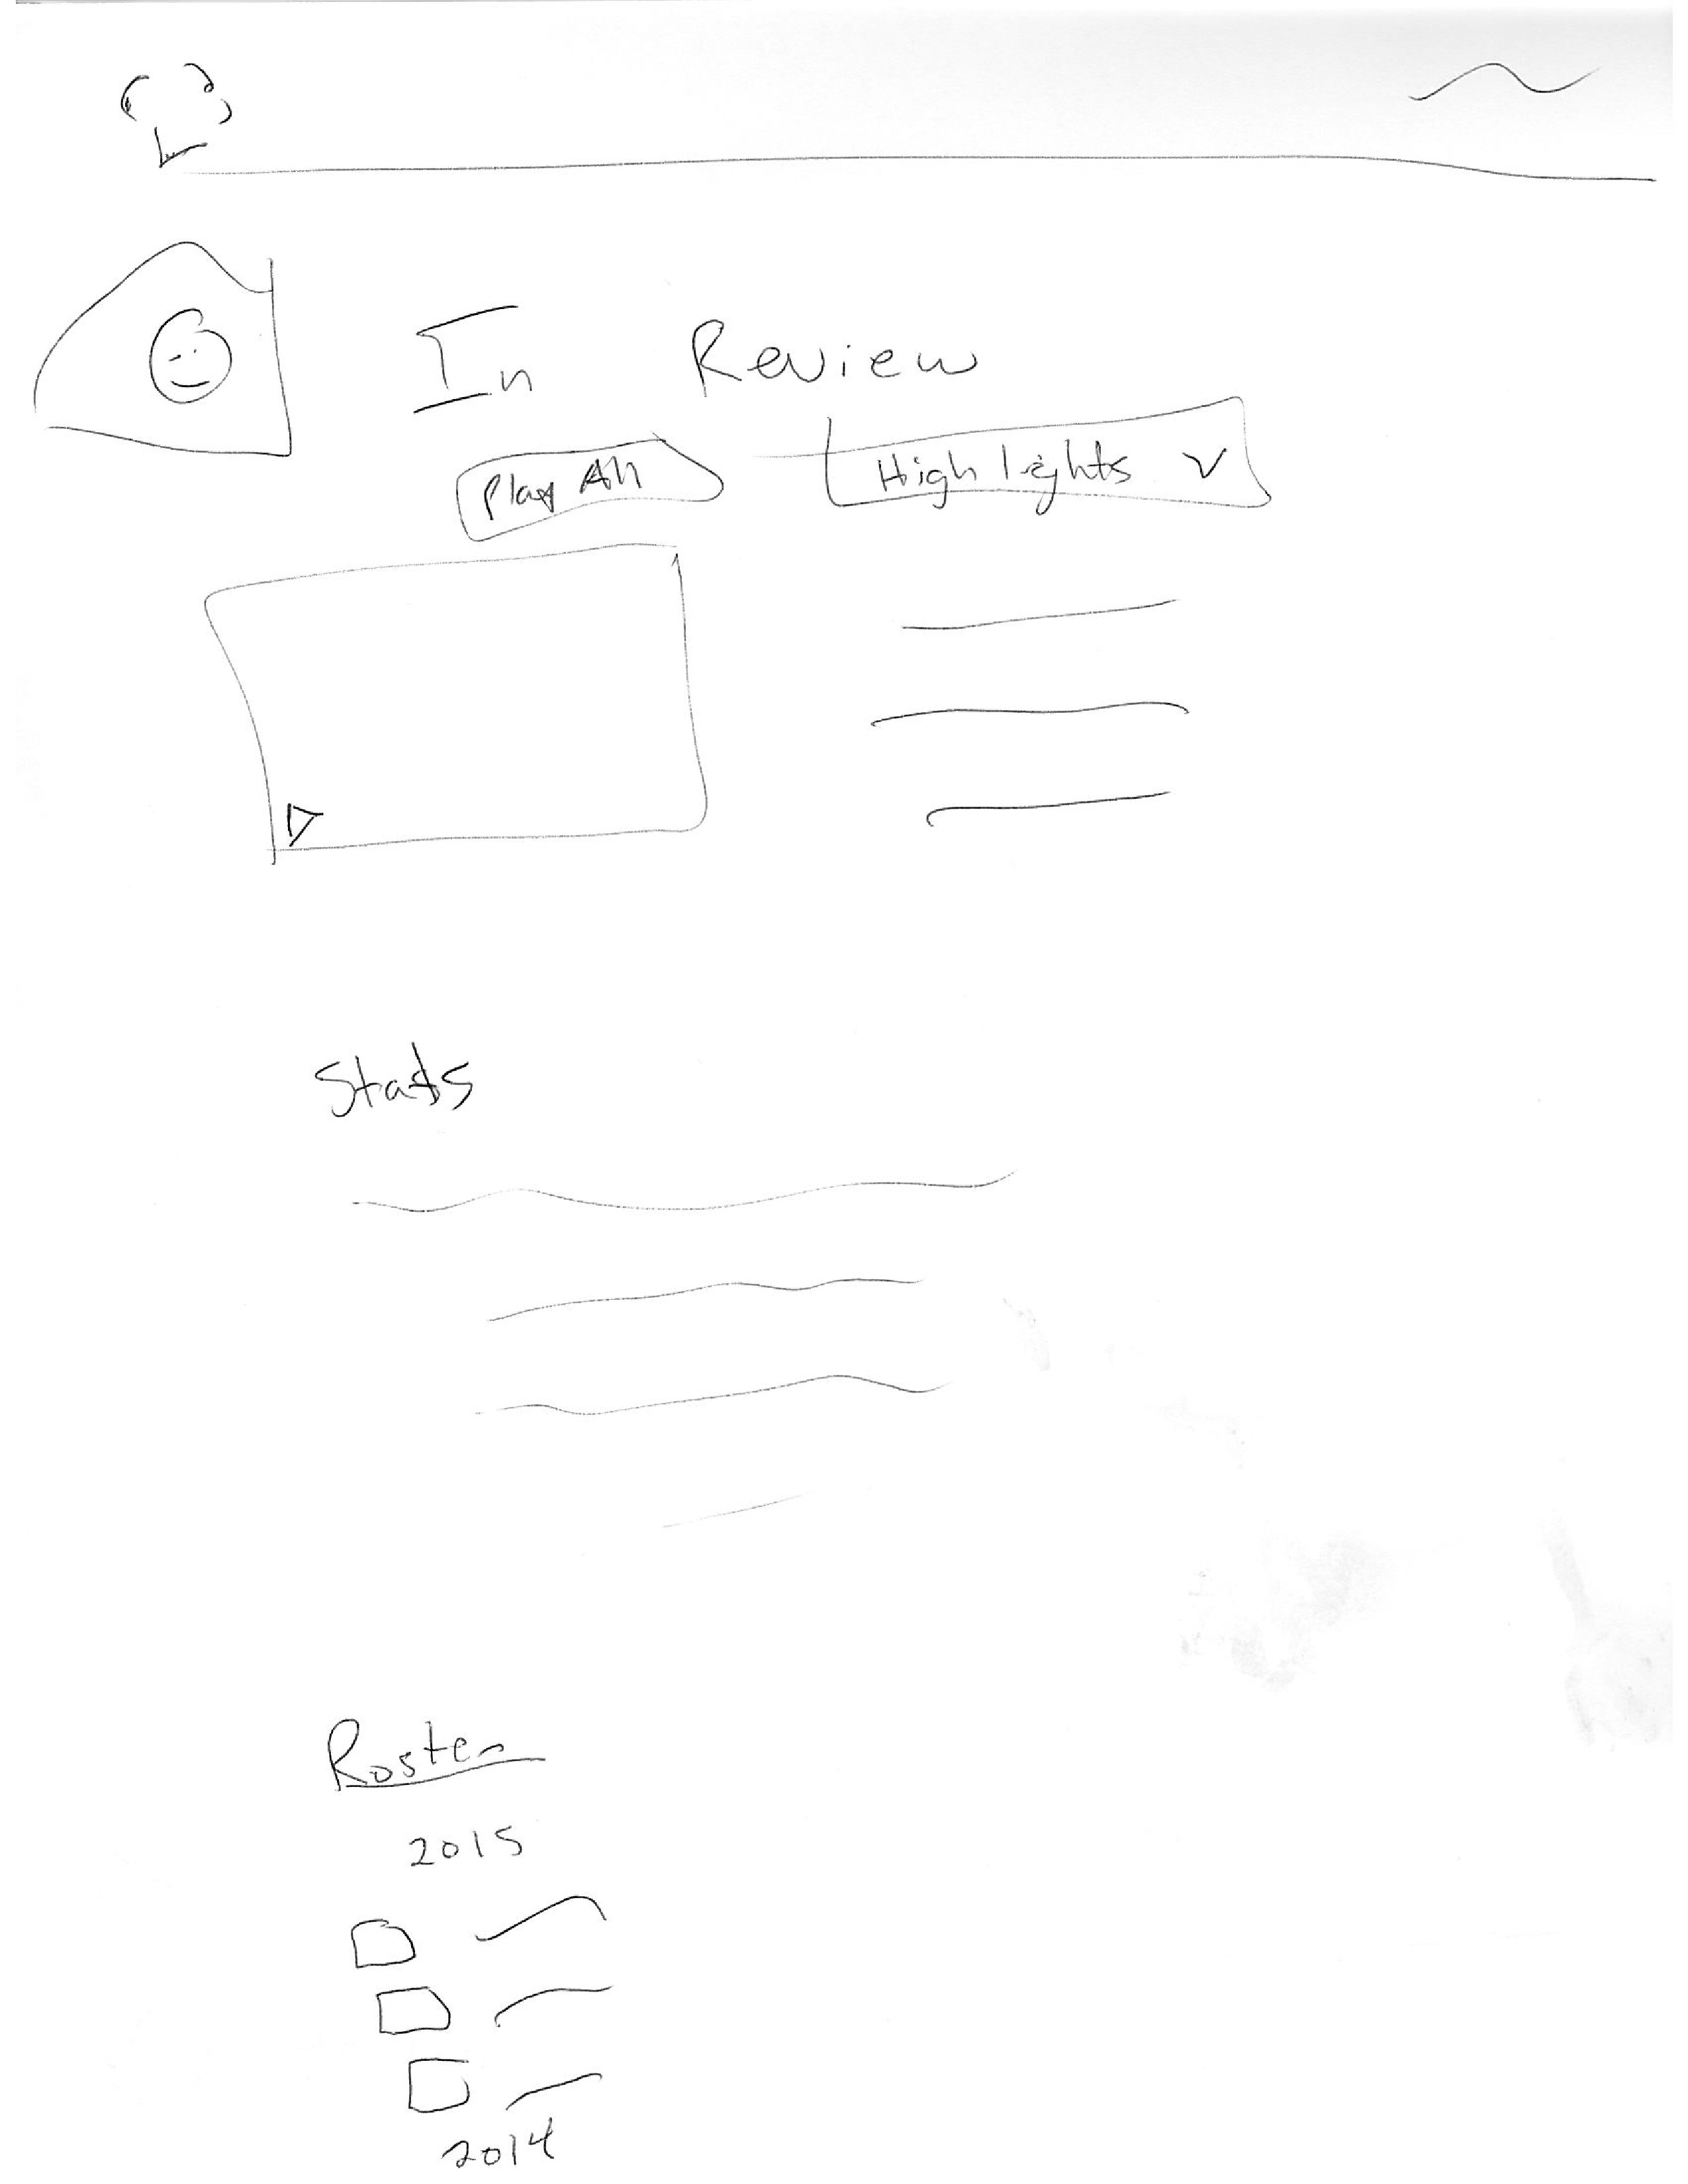 In Review
Play All
Highlights
Stats
Roster
2015
2014